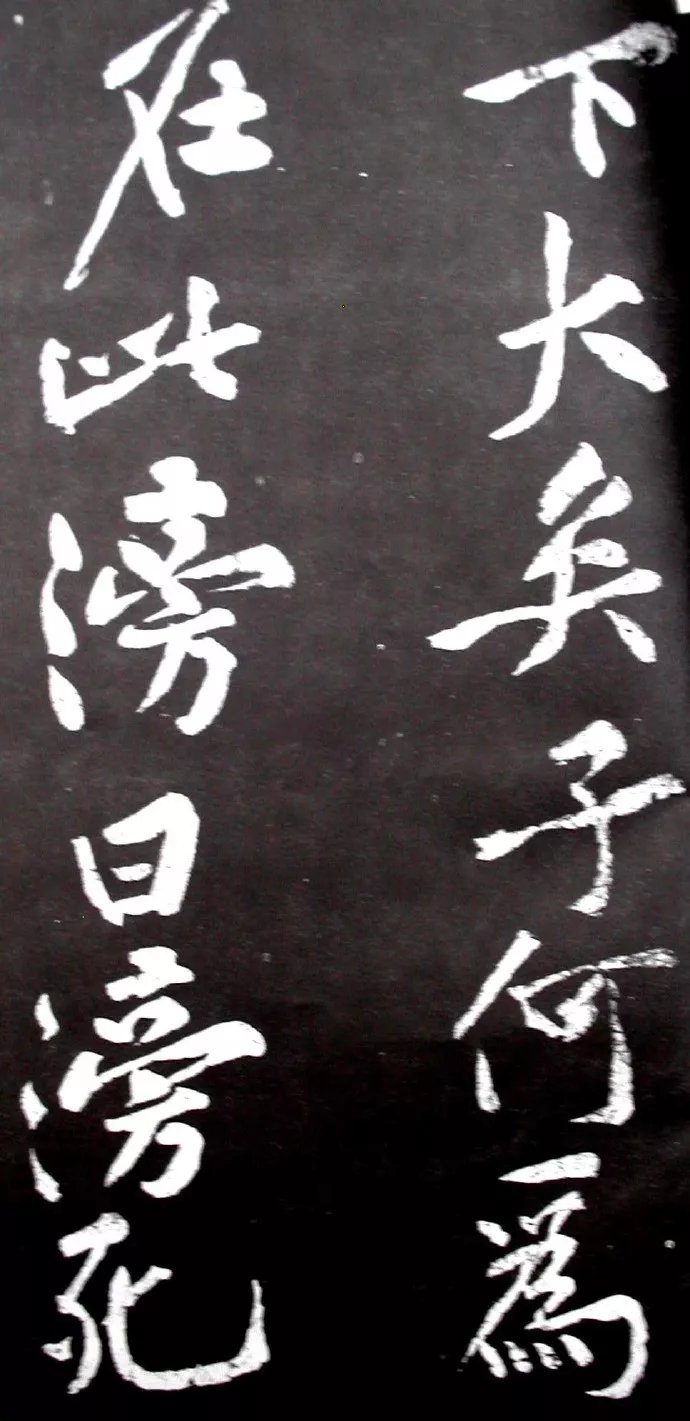 下大矣子何爲
在此滂曰滂死